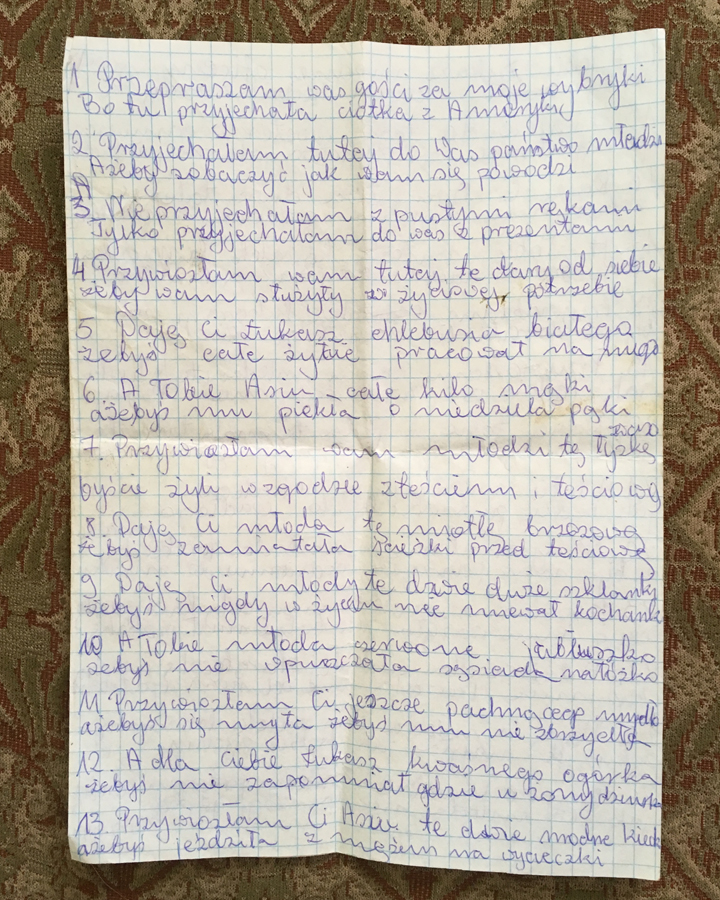 1 Przepraszam was gości za moje wybryki
Bo tu przyjechała ciotka z Ameryki
2. Przyjechałam tutaj do Was państwo młodzi
Ażeby zobaczyć jak wam się powodzi
A
3. Nie przyjechałam z pustymi rękami
Tylko przyjechałam do was z prezentami
4 Przywiozłam wam tutaj te dary od siebie
żeby wam służyły w życiowej potrzebie
5 Daję Ci Łukasz chlebusia białego
żebyś całe życie pracował na niego
6. A Tobie Asiu całe kilo mąki
ażebyś mu piekła o niedziela pąki
7. Przywiozłam wam młodzi tę łyżkę
byście żyli w zgodzie z teściem i teściową
8. Daję Ci młoda tę miotłę brzozową
żebyś zamiatała ścieżki przed teściową
9 Daję Ci młody te dwie duże szklanki
żebyś nigdy w życiu nie miewał kochanki
10 A Tobie młoda czerwone jabłuszko
żebyś nie opuszczała sąsiada na łóżko
11 Przywiozłam Ci jeszcze pachnącego mydła
ażebyś się myła żebyś mu nie zbrzydła
12. A dla ciebie Łukasz kwaśnego ogórka
żebyś nie zapominał gdzie u żony dziurka
13. Przywiozłam Ci Asiu te dwie modne kiecki
ażebyś jeździła z mężem na wycieczki